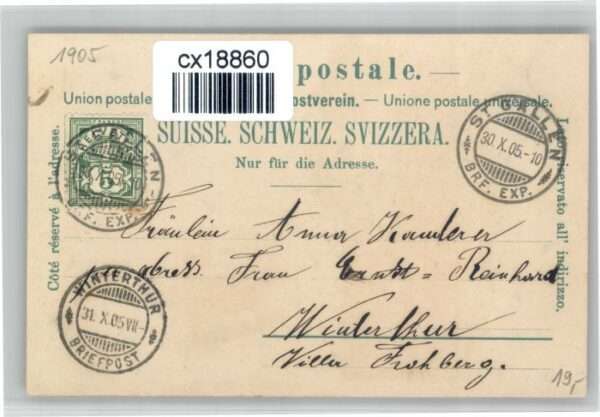 1905
cx18860
postale.
Union postale ostverein. — Unione postale universale.
SUISSE. SCHWEIZ. SVIZZERA.
Nur für die Adresse.
Côté réservé à l'adresse.
Lato riservato all' indirizzo.
5
ST. GALLEN
BRF. EXP.
ST. GALLEN
30.X.05.-10
BRF. EXP.
Fräulein Anna Kamberer
adress. Frau Ernst = Reinhard
Winterthur
Villa Frohberg.
WINTERTHUR
31.X.05 VII-
BRIEFPOST
19,-